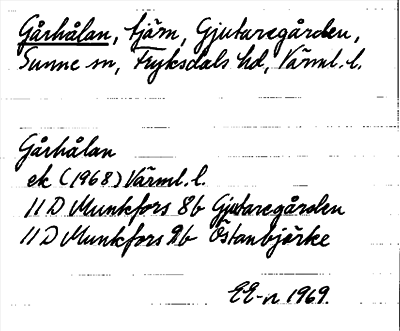 Gårhålan, tjärn, Gjutaregården,
Sunne sn, Fryksdals hd, Värml. l.
Gårhålan
ek (1968) Värml. l.
11 D Munkfors 8b Gjutaregården
11 D Munkfors 9b Östanbjörke
EE-n 1969.